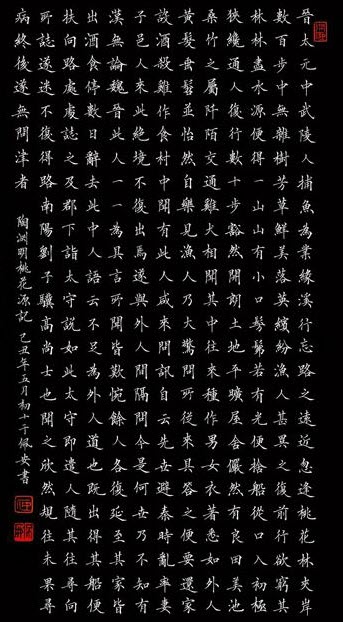 晉太元中武陵人捕魚為業緣溪行忘路之遠近忽逢桃花林夾岸
數百步中無雜樹芳草鮮美落英繽紛漁人甚異之復前行欲窮其
林林盡水源便得一山山有小口髣髴若有光便捨船從口入初極
狹纔通人復行數十步豁然開朗土地平曠屋舍儼然有良田美池
桑竹之屬阡陌交通雞犬相聞其中往來種作男女衣著悉如外人
黃髮垂髫並怡然自樂見漁人乃大驚問所從來具答之便要還家
設酒殺雞作食村中聞有此人咸來問訊自云先世避秦時亂率妻
子邑人來此絕境不復出焉遂與外人間隔問今是何世乃不知有
漢無論魏晉此人一一為具言所聞皆歎惋餘人各復延至其家皆
出酒食停數日辭去此中人語云不足為外人道也既出得其船便
扶向路處處誌之及郡下詣太守說如此太守即遣人隨其往尋向
所誌遂迷不復得路南陽劉子驥高尚士也聞之欣然規往未果尋
病終後遂無問津者
陶淵明桃花源記 己丑年五月初十于佩安書